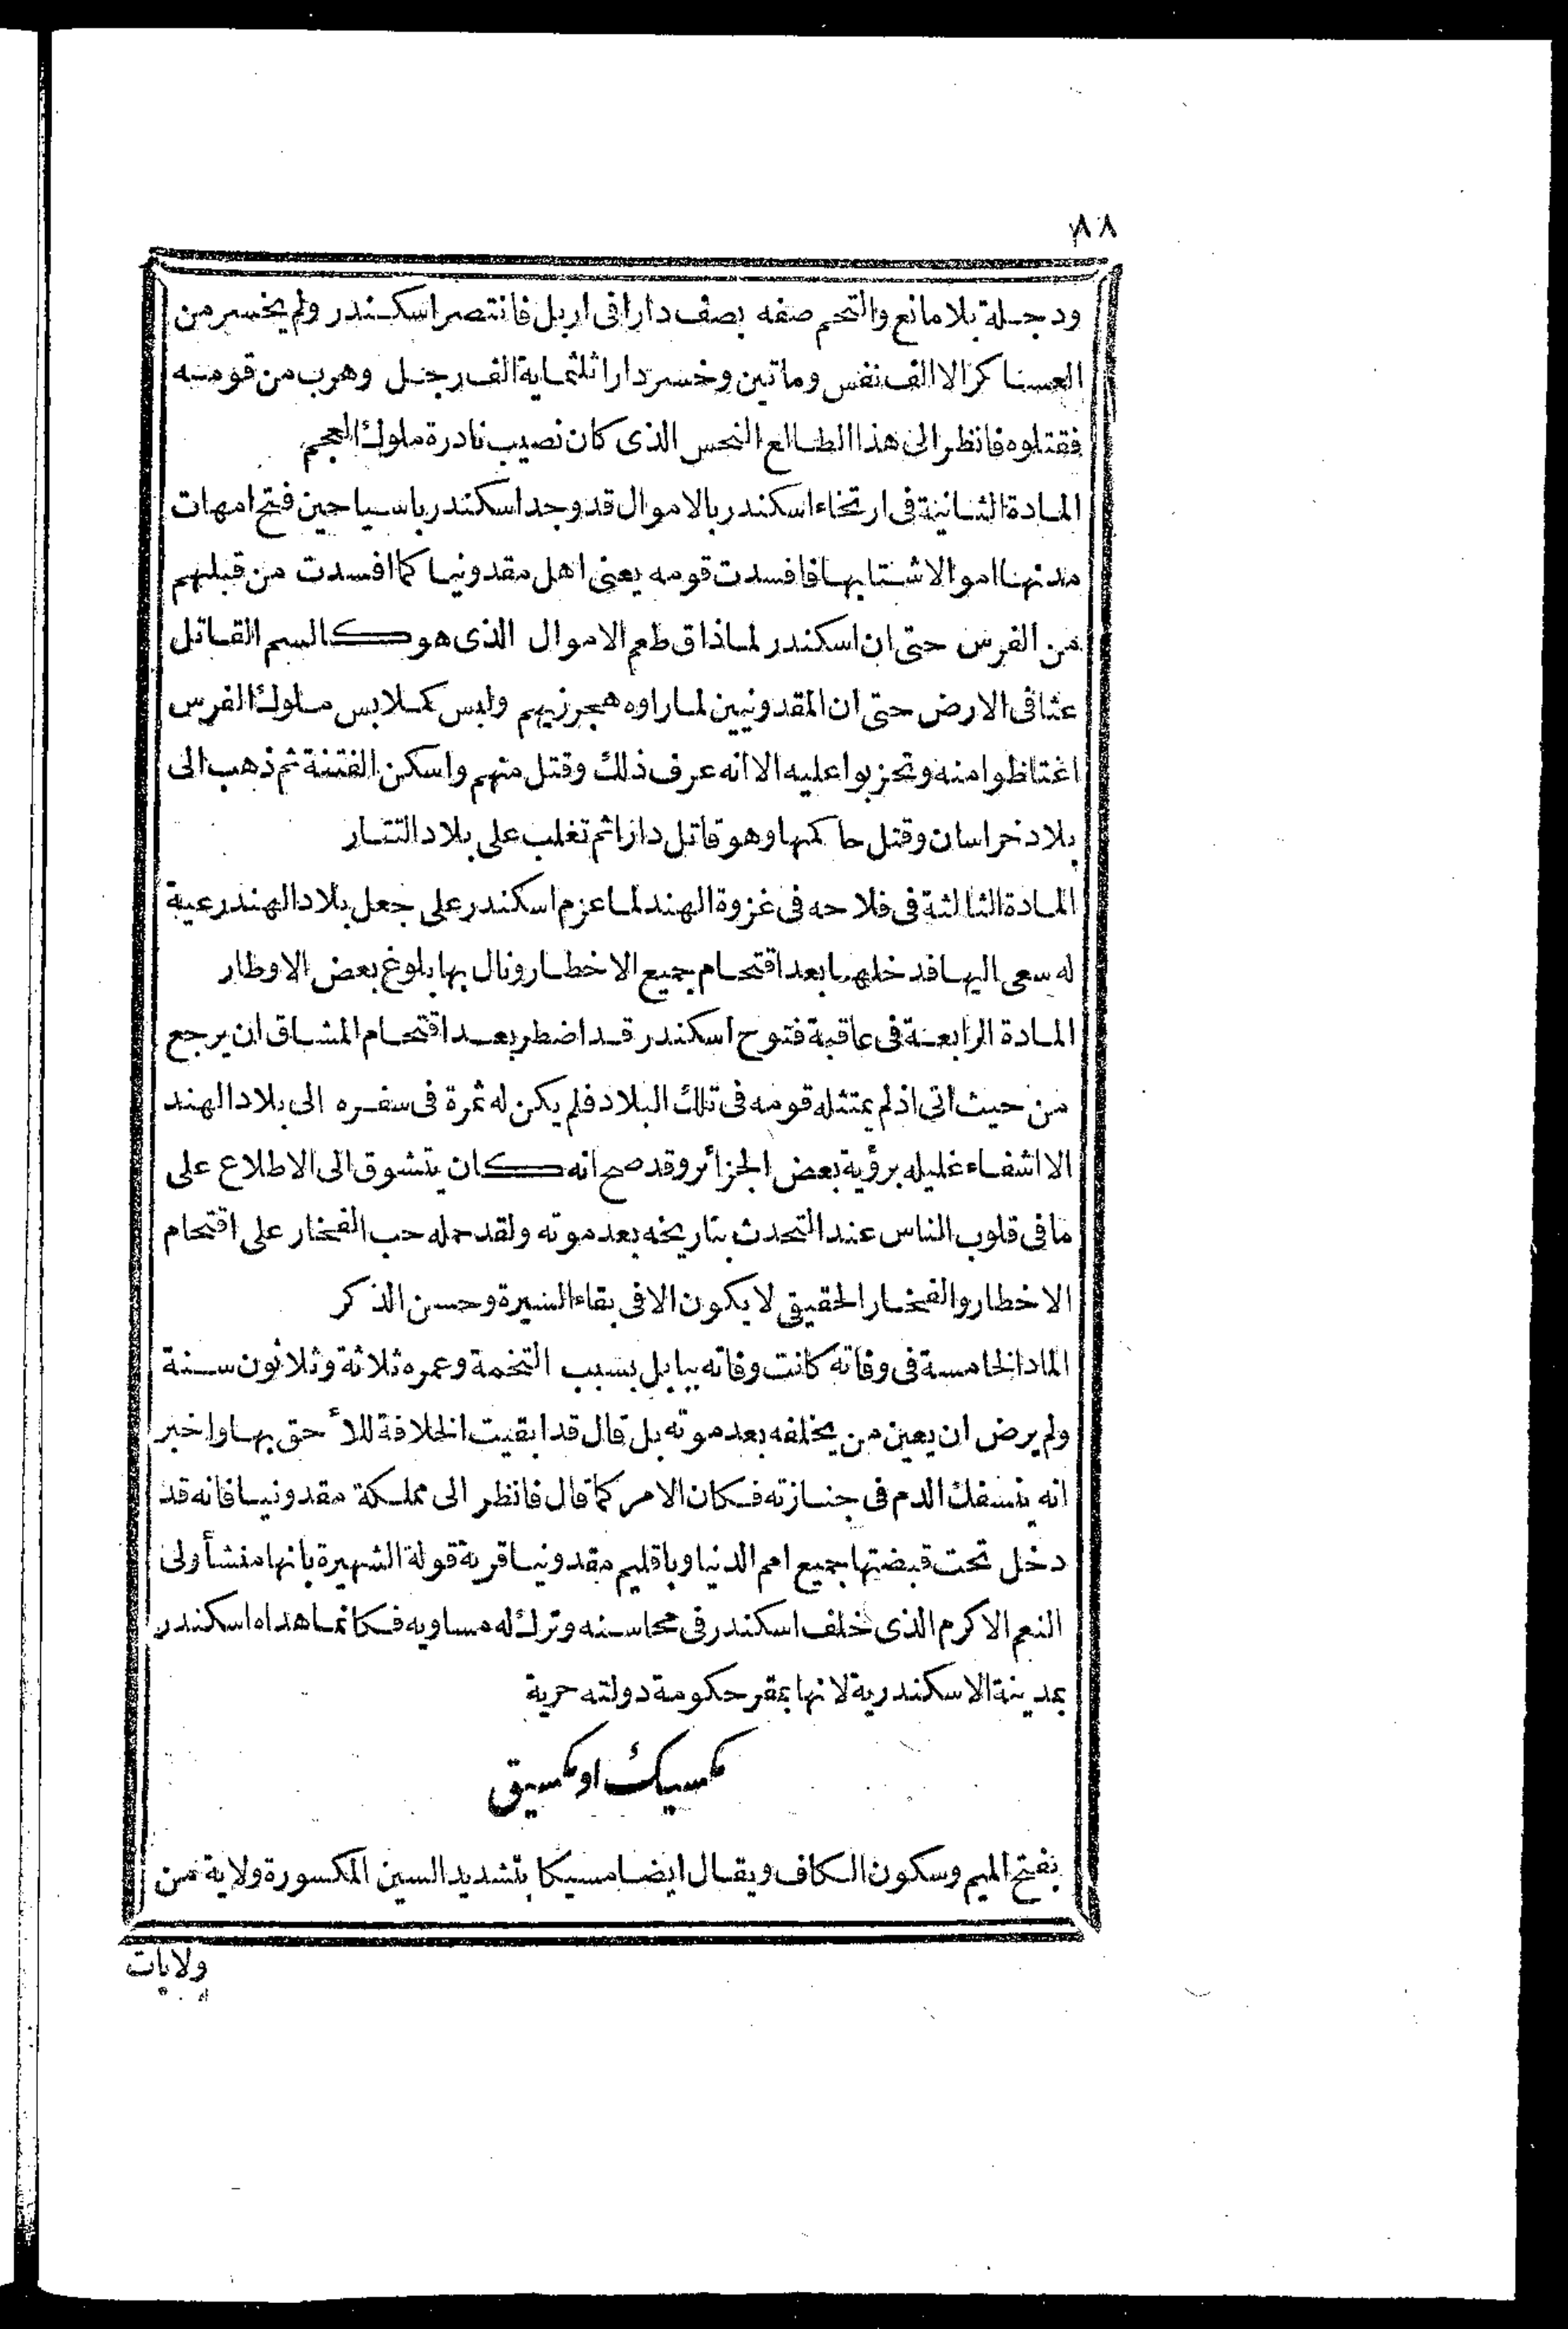 ٨٨
ودجلة بلا مانع والتحم صفه بصف دارا فى اربل فانتصر اسكندر ولم يخسر من
العساكر الا الف نفس وماتين وخسر دارا ثلثماية الف رجل وهرب من قومه
فقتلوه فانظر الى هذا الطالع النحس الذى كان نصيب نادرة ملوك العجم
المادة الثانية فى ارتخاء اسكندر بالاموال قد وجد اسكندر باسيا حين فتح امهات
مدنها اموالا شتا بها فافسدت قومه يعنى اهل مقدونيا كما افسدت من قبلهم
من الفرس حتى ان اسكندر لما ذاق طعم الاموال الذى هو كالسم القاتل
عثا فى الارض حتى ان المقدونيين لما راوه هجر زيهم ولبس كملابس ملوك الفرس
اغتاظوا منه وتحزبوا عليه الا انه عرف ذلك وقتل منهم واسكن الفتنة ثم ذهب الى
بلاد خراسان وقتل حاكمها وهو قاتل دارا ثم تغلب على بلاد التتار
المادة الثالثة فى فلاحه فى غزوة الهند لما عزم اسكندر على جعل بلاد الهند رعية
له سعى اليها فدخلها بعد اقتحام جميع الاخطار ونال بها بلوغ بعض الاوطار
المادة الرابعة فى عاقبة فتوح اسكندر قد اضطر بعد اقتحام المشاق ان يرجع
من حيث اتى اذ لم يمتثله قومه فى تلك البلاد فلم يكن له ثمرة فى سفره الى بلاد الهند
الا اشفاء غليله برؤية بعض الجزائر وقد صح انه كان يتشوق الى الاطلاع على
ما فى قلوب الناس عند التحدث بتاريخه بعد موته ولقد حمله حب الفخار على اقتحام
الاخطار والفخار الحقيقى لا يكون الا فى بقاء السيرة وحسن الذكر
الماد الخامسة فى وفاته كانت وفاته ببابل بسبب التخمة وعمره ثلاثة وثلاثون سنة
ولم يرض ان يعين من يخلفه بعد موته بل قال قد ابقيت الخلافة للأحق بها واخبر
انه يتسفك الدم فى جنازته فكان الامر كما قال فانظر الى مملكة مقدونيا فانه قد
دخل تحت قبضتها جميع امم الدنيا وباقليم مقدونيا قرية قولة الشهيرة بانها منشأ ولى
النعم الاكرم الذى خلف اسكندر فى محاسنه وترك له مساويه فكانما هداه اسكندر
بمدينة الاسكندرية لانها بمقر حكومة دولته حرية
مكسيك او مكسيق
بفتح الميم وسكون الكاف ويقال ايضا مسيكا بتشديد السين المكسورة ولاية من
ولايات